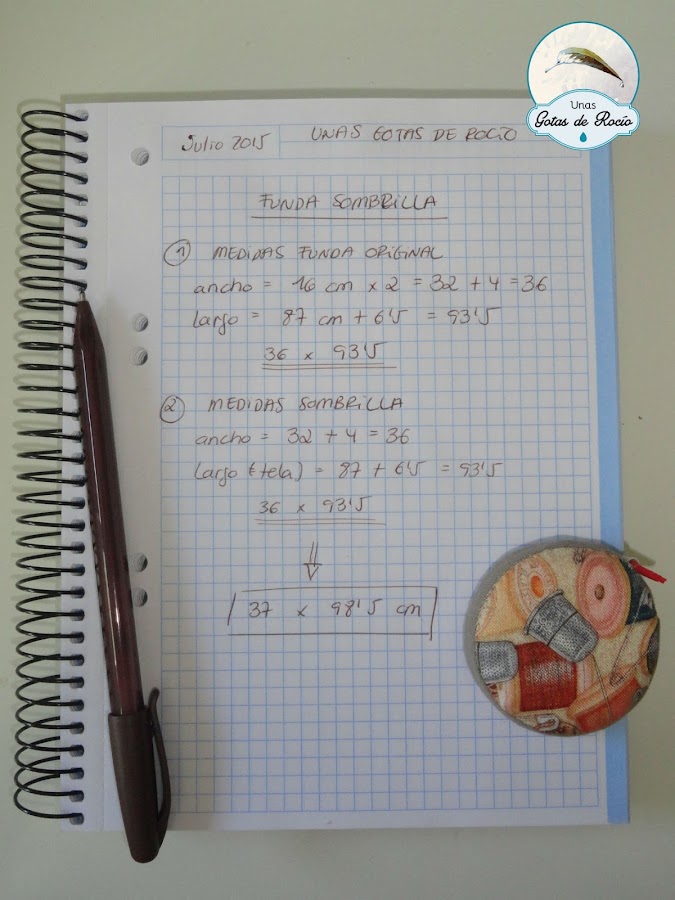 Unas
Gotas de Rocío
Julio 2015
UNAS GOTAS DE ROCÍO
FUNDA SOMBRILLA
1 MEDIDAS FUNDA ORIGINAL
ancho = 16 cm x 2 = 32 + 4 = 36
largo = 87 cm + 6'5 = 93'5
36 x 93'5
2 MEDIDAS SOMBRILLA
ancho = 32 + 4 = 36
largo (tela) = 87 + 6'5 = 93'5
36 x 93'5
⇓
37 x 98'5 cm